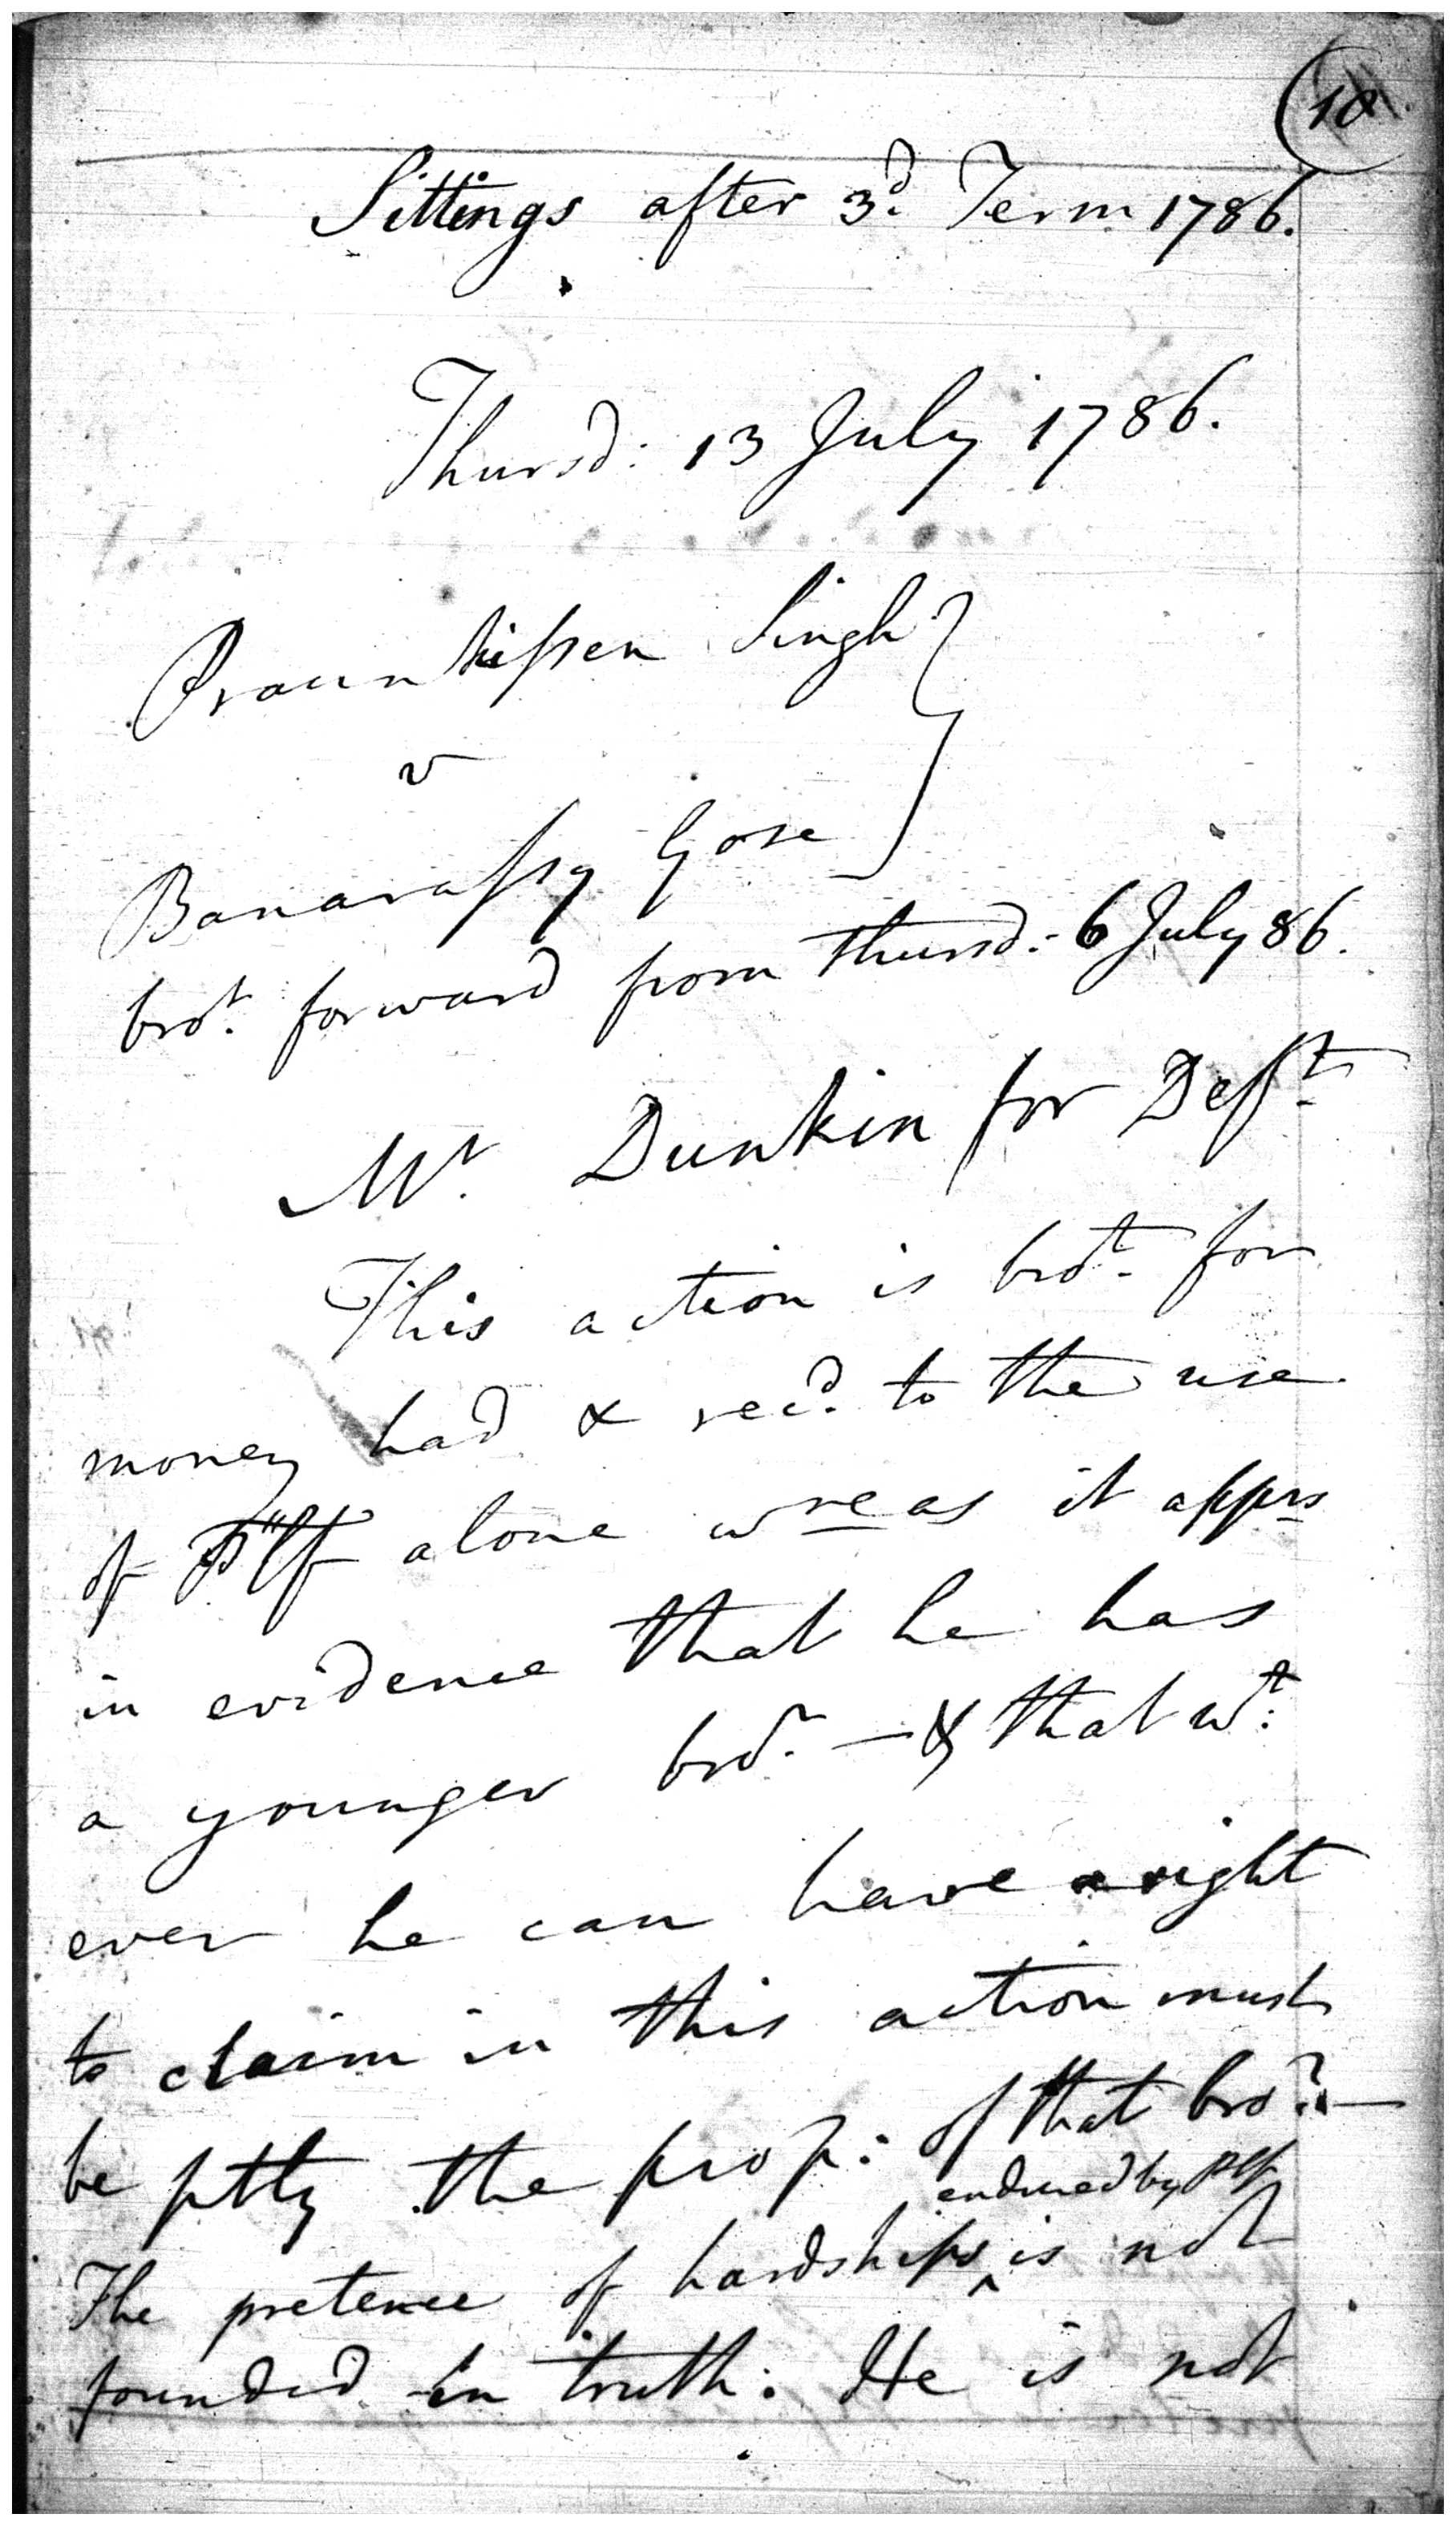 Sittings after 3d. Term 1786.
Thursd: 13 July 1786.
Praunkissen Singh
v
Banarassy Gose
brot. forward from Thursd: 6 July 86.
Mr. Dunkin for Defft.
This action is brot. for
money had & recd. to the use
of Plff alone wreas it apprs
in evidence that he has
a younger bror. — & that wt:
ever he can have a right
to claim in this action must
be ptly the prop: of that bror. —
endured by Plff
The pretence of hardships ^ is not
founded in truth: He is not